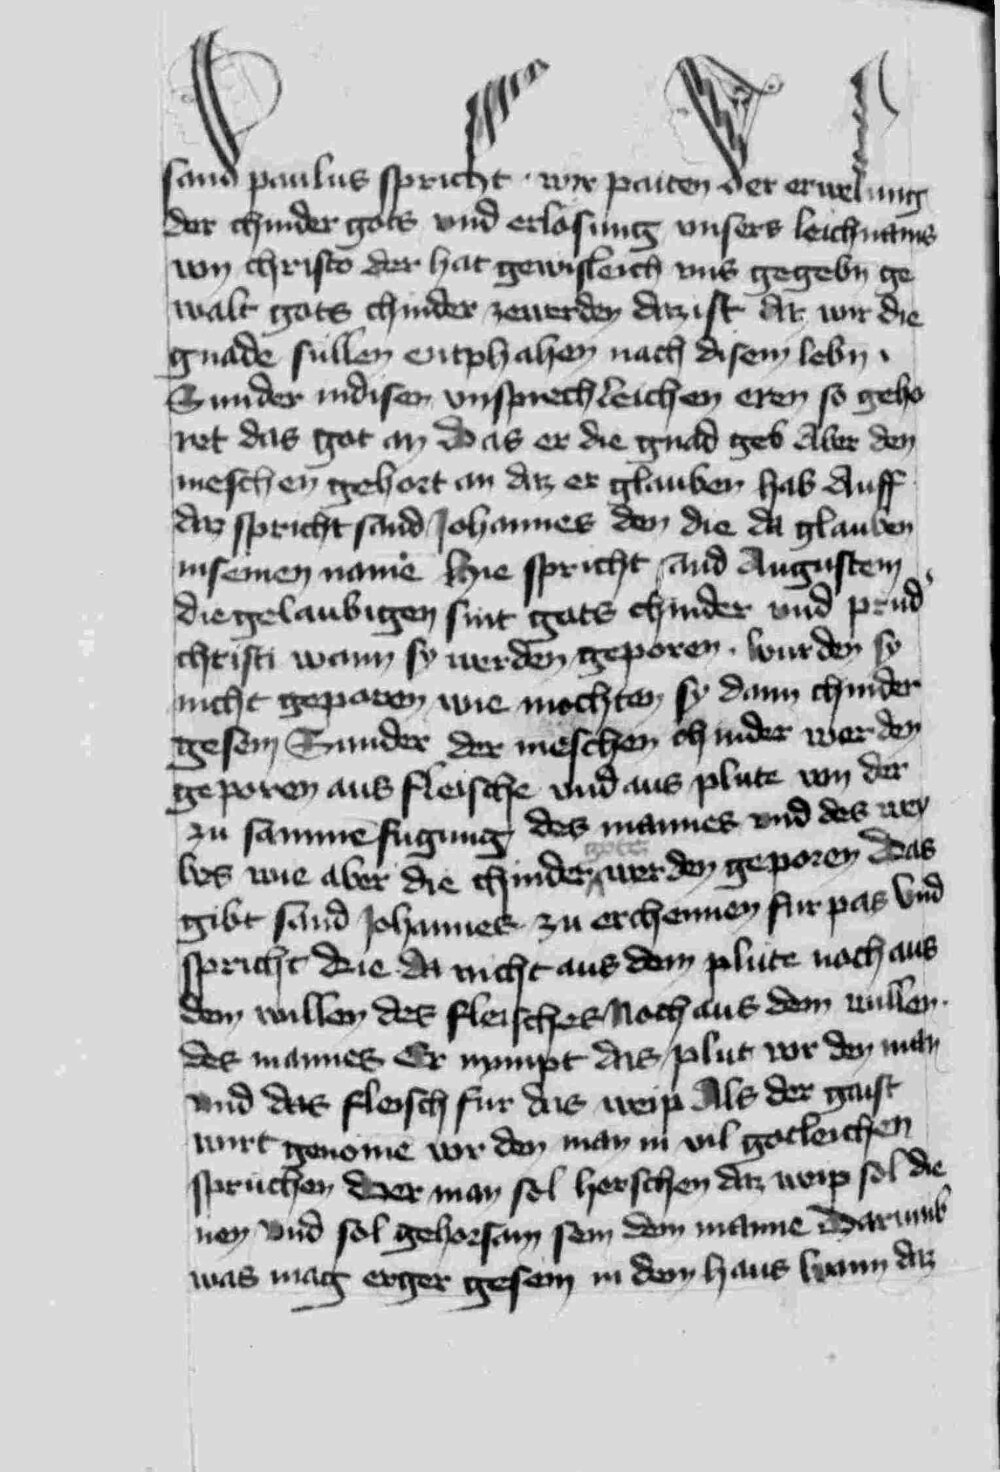 sand paulus spricht · wir paiten der erwelung
der chinder gots vnd erlösung vnsers leichnams
von christo der hat gewisleich vns gegebn ge
walt gots chinder zewerden daz ist daz wir die
gnade sullen entphahen nach disem lebn ·
Sunder in disen vnsprechleichen eren so geho
ret das got an Das er die gnad geb Aber den
meschen gehort an daz er glauben hab Auff
daz spricht sand Johannes den die da glauben
in seinen name Hie spricht sand Augustein
die gelaubigen sint gots chinder vnd prud
christi wann sy werden geporen · wurden sy
nicht geporen wie mochten sy dann chinder
gesein Sunder der meschen chinder werden
geporen aus fleische vnd aus plute von der
zu samme fugung des mannes vnd des wey
bes wie aber die chinder gotes werden geporen Das
gibt sand Johannes zu erchennen furpas Vnd
spricht Die da nicht aus dem plute noch aus
dem willen des fleisches Noch aus dem willen ·
des mannes Er nympt das plut vor den man
vnd das fleisch fur das weip Als der gaist
wirt genome vor den man in vil gotleichen
spruchen Der man sol herschen daz weip sol die
nen Vnd sol gehorsam sein dem manne Darumb
was mag erger gesein in dem haus wann daz